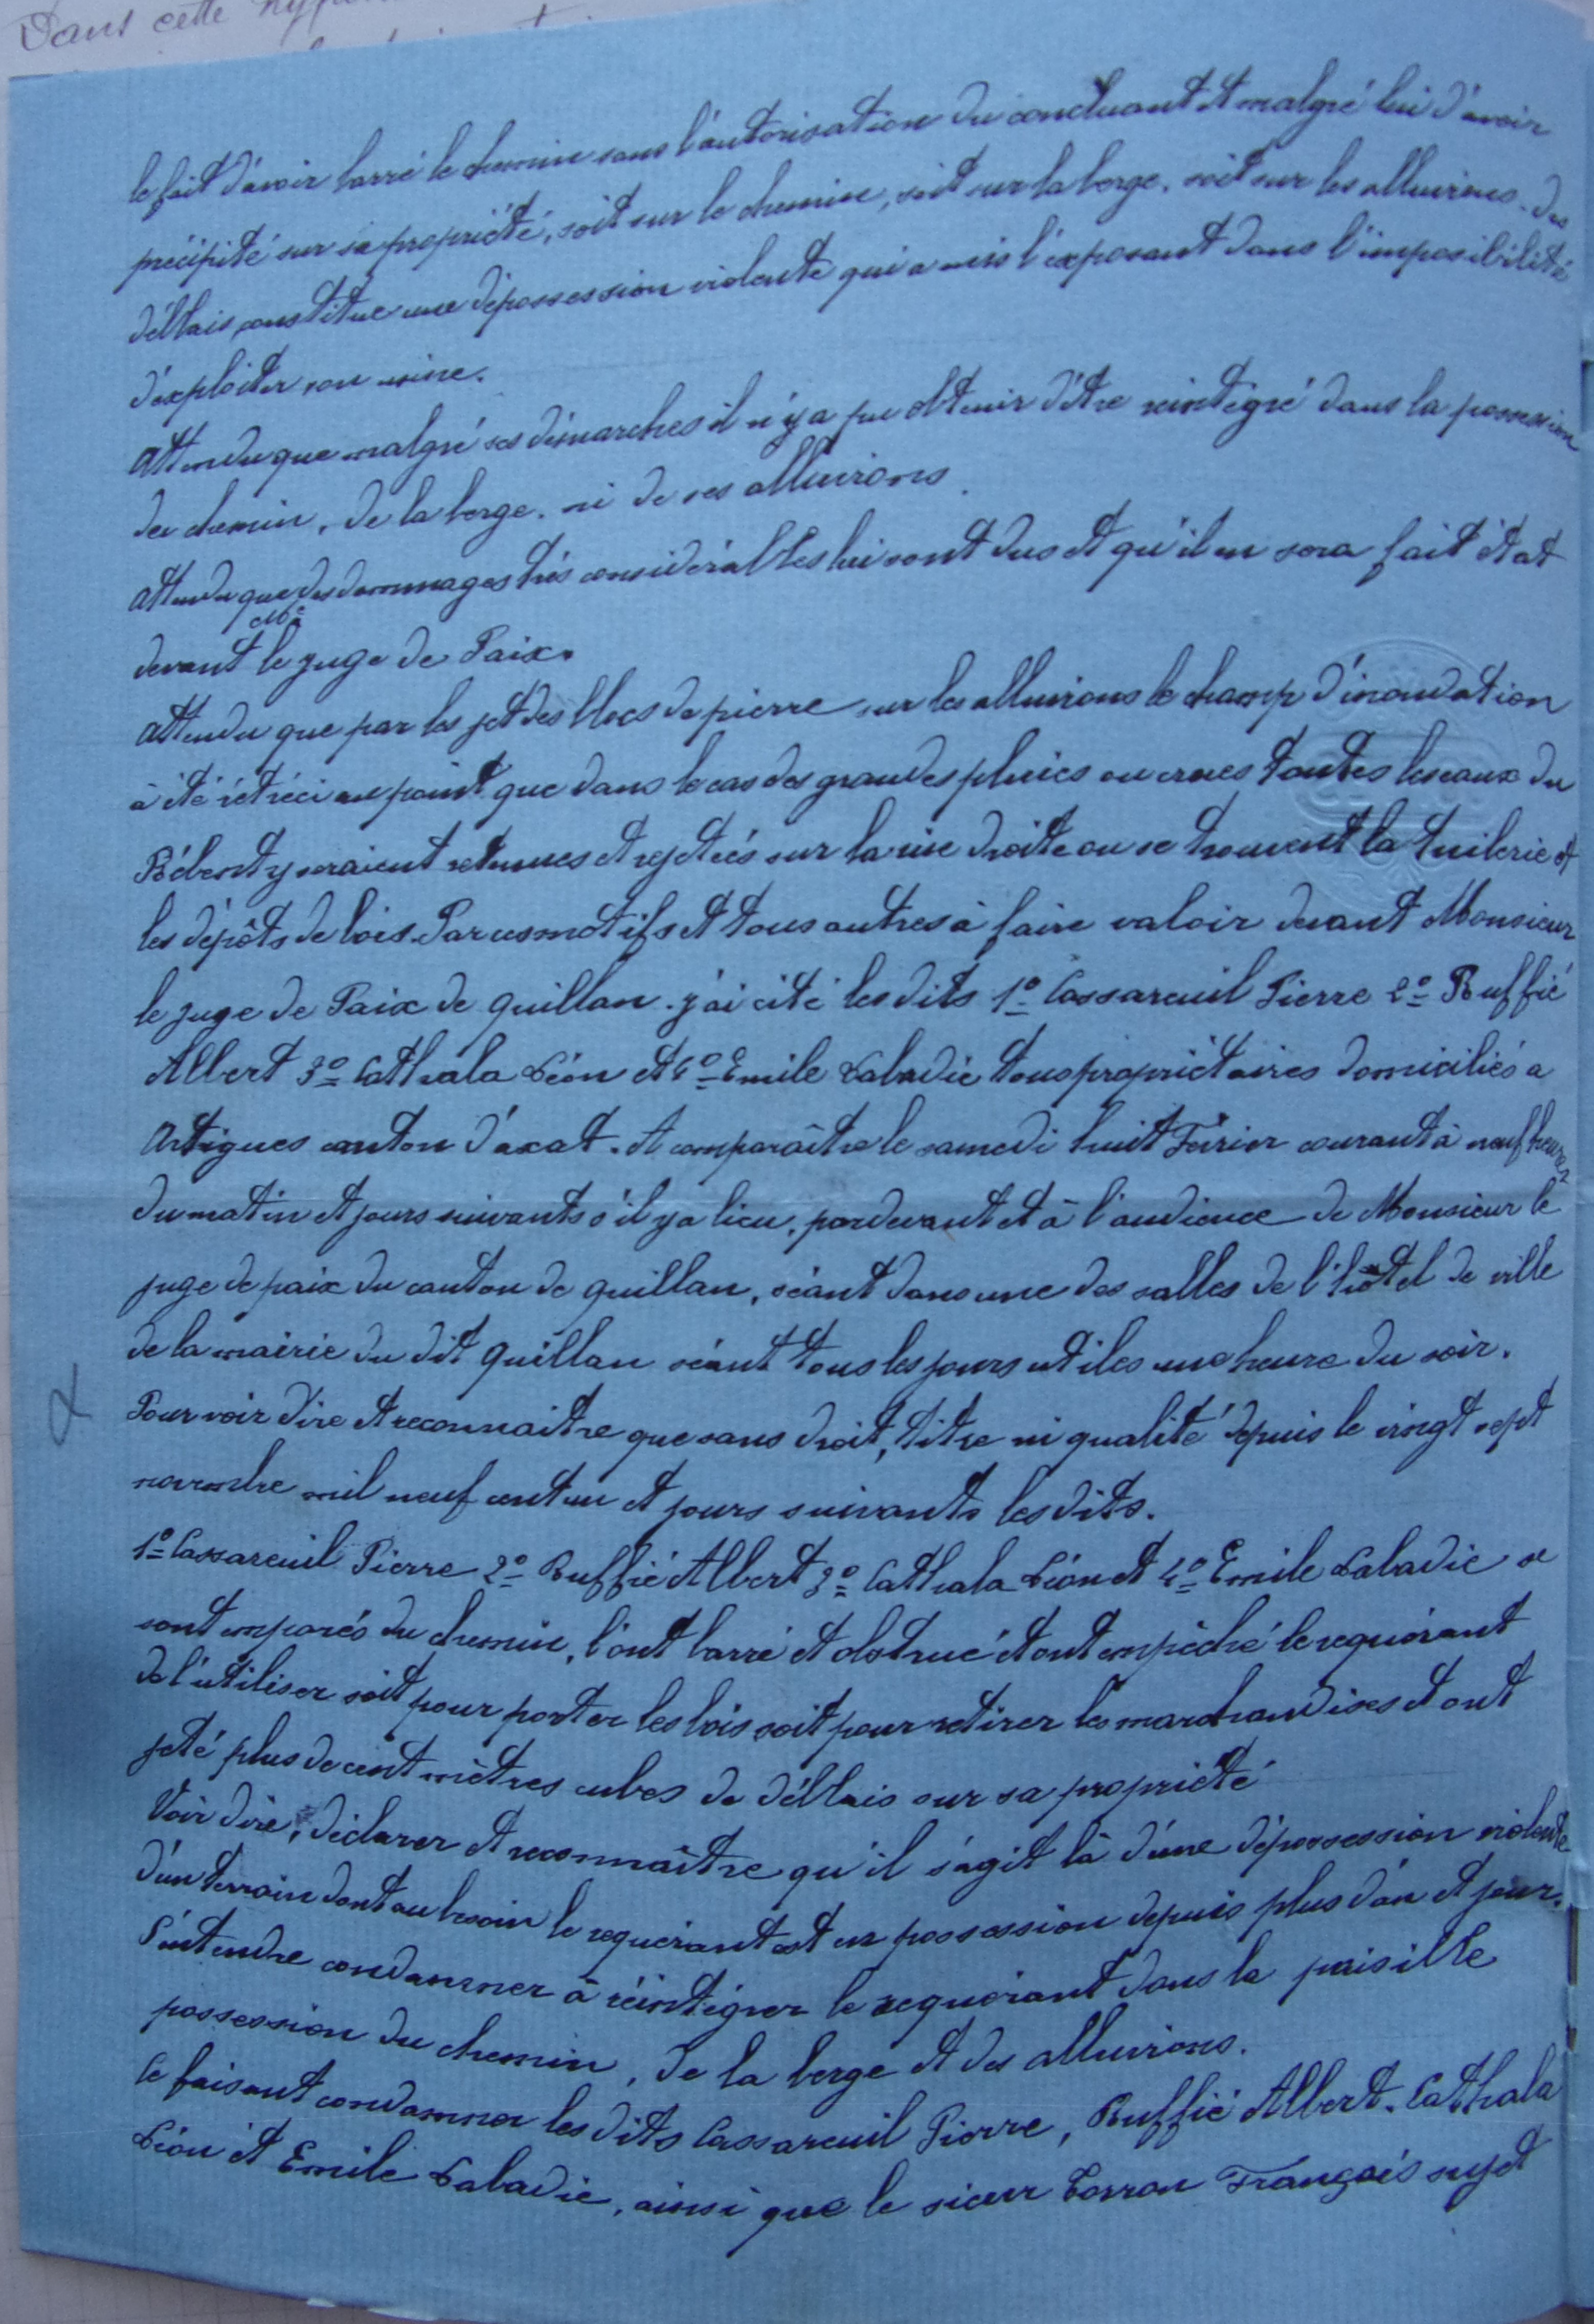 Dans cette
le fait d'avoir barré le chemin sans l'autorisation du concluant et malgré lui d'avoir
précipité sur sa propriété, soit sur le chemin, soit sur la berge, soit sur les alluvions. des
déblais, constitue une dépossession violente qui a mis l'exposant dans l'imposibilité
d'exploiter son usine.
Attendu que malgré ses démarches il n'y a pu obtenir d'être reintégré dans la possession
du chemin, de la berge. ni de ses alluvions.
Attendu que des dommages très considérables lui sont dus et qu'il en sera fait état
devant le juge de Paix.
Attendu que par les jet des blocs de pierre sur les alluvions le champ d'inondation
à été rétréci au point que dans le cas des grandes pluies ou crues toutes les eaux du
Rébenty seraient retenues et rejetées sur la rive droite ou se trouvent la tuilerie et
les dépôts de bois. Par ces motifs et tous autres à faire valoir devant Monsieur
le juge de Paix de Quillan. j'ai cité les dits 1º Cassareuil Pierre 2º Ruffié
Albert 3º Cathala Léon et 4º Emile Labadie tous propriétaires domiciliés a
Artigues canton d'axat. A comparaître le samedi huit Février courant à neuf heures
du matin et jours suivants s'il y a lieu, pardevant et à l'audience de Monsieur le
juge de paix du canton de Quillan, séant dans une des salles de l'hôtel de ville
de la mairie du dit Quillan séant tous les jours utiles une heure du soir.
Pour voir dire et reconnaitre que sans droit, titre ni qualité depuis le vingt sept
novembre mil neuf cent un et jours suivants les dits.
1º Cassareuil Pierre 2º Ruffié Albert 3º Cathala Léon et 4º Emile Labadie se
sont emparés du chemin, l'ont barré et obstrué et ont empêché le requérant
de l'utiliser soit pour porter les bois soit pour retirer les marchandises et ont
jeté plus de cent mètres cubes de déblais sur sa propriété
Voir dire, déclarer et reconnaître qu'il s'agit là d'une dépossession violente
d'un terrain dont au besoin le requérant est en possession depuis plus d'an et jour.
S'entendre condamner à réintégrer le requérant dans la paisible
possession du chemin, de la berge et des alluvions.
Ce faisant condamner les dits Cassareuil Pierre, Ruffié Albert. Cathala
Léon et Emile Labadie, ainsi que le sieur François sujet